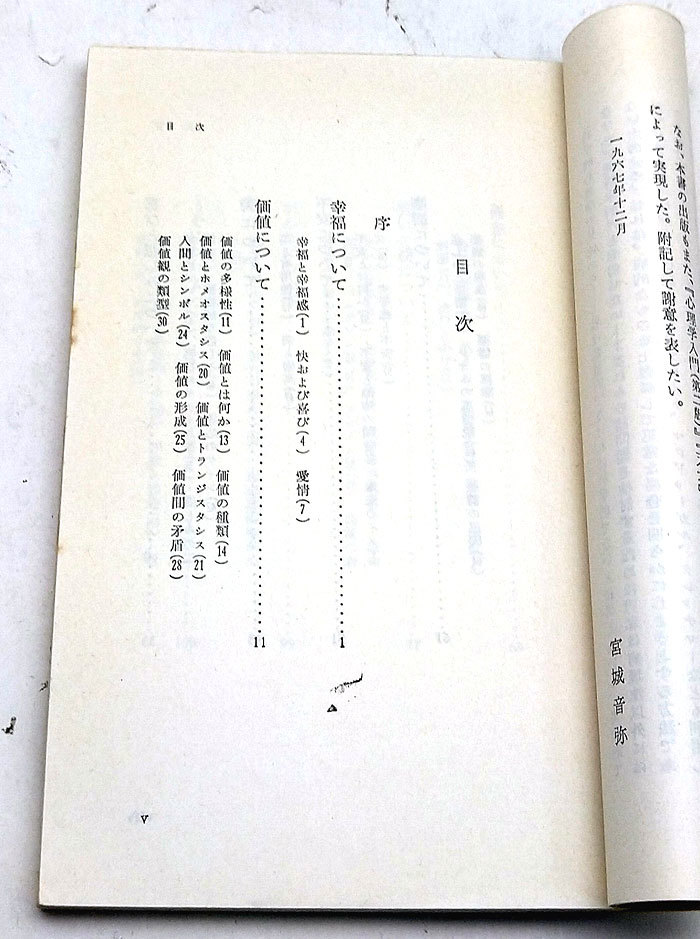 なお、本書の出版もまた、『心理学入門(第二版)』
によって実現した。附記して謝意を表したい。
一九六七年十二月
宮城音弥
目次
目次
序
幸福について……………………1
幸福と幸福感(1) 快および喜び(4) 愛情(7)
価値について……………………11
価値の多様性(11) 価値とは何か(13) 価値の種類(14)
価値とホメオスタシス(20) 価値とトランジスタシス(21)
人間とシンボル(24) 価値の形成(25) 価値間の矛盾(28)
価値観の類型(30)
v